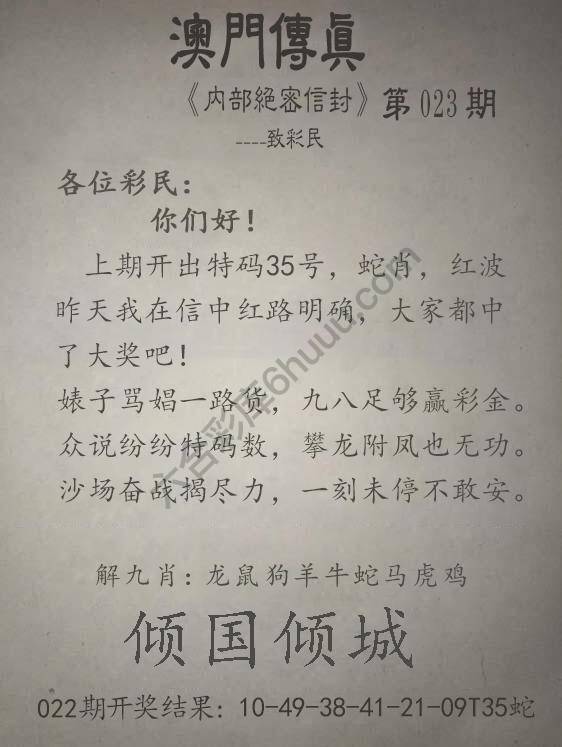 澳門傳真
《内部絕密信封》第023期
----致彩民
各位彩民：
你们好！
上期开出特码35号，蛇肖，红波
昨天我在信中红路明确，大家都中
了大奖吧！
婊子骂娼一路货，九八足够赢彩金。
众说纷纷特码数，攀龙附凤也无功。
沙场奋战揭尽力，一刻未停不敢安。
六合彩库6huuu.com
解九肖：龙鼠狗羊牛蛇马虎鸡
倾国倾城
022期开奖结果：10-49-38-41-21-09T35蛇